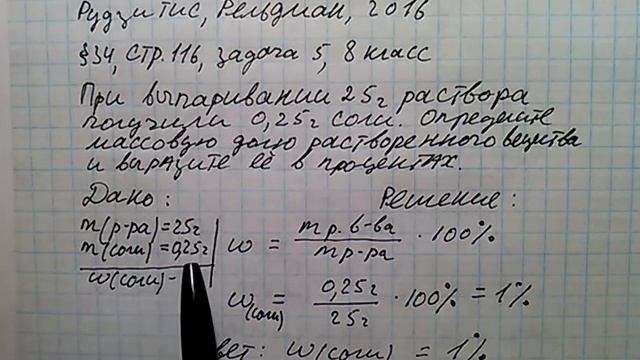 Рудзитис, Рельдман, 2016
§34, стр. 116, задача 5, 8 класс
При выпаривании 25г раствора
получили 0,25г соли. Определите
массовую долю растворенного вещества
и выразите её в процентах.
Дано: Решение:
m(р-ра)=25г
m(соли)=0,25г
w(соли)-
w = m р. в-ва / m р-ра · 100%
w(соли) = 0,25г / 25г · 100% = 1%
вет: w(соли) = 1%